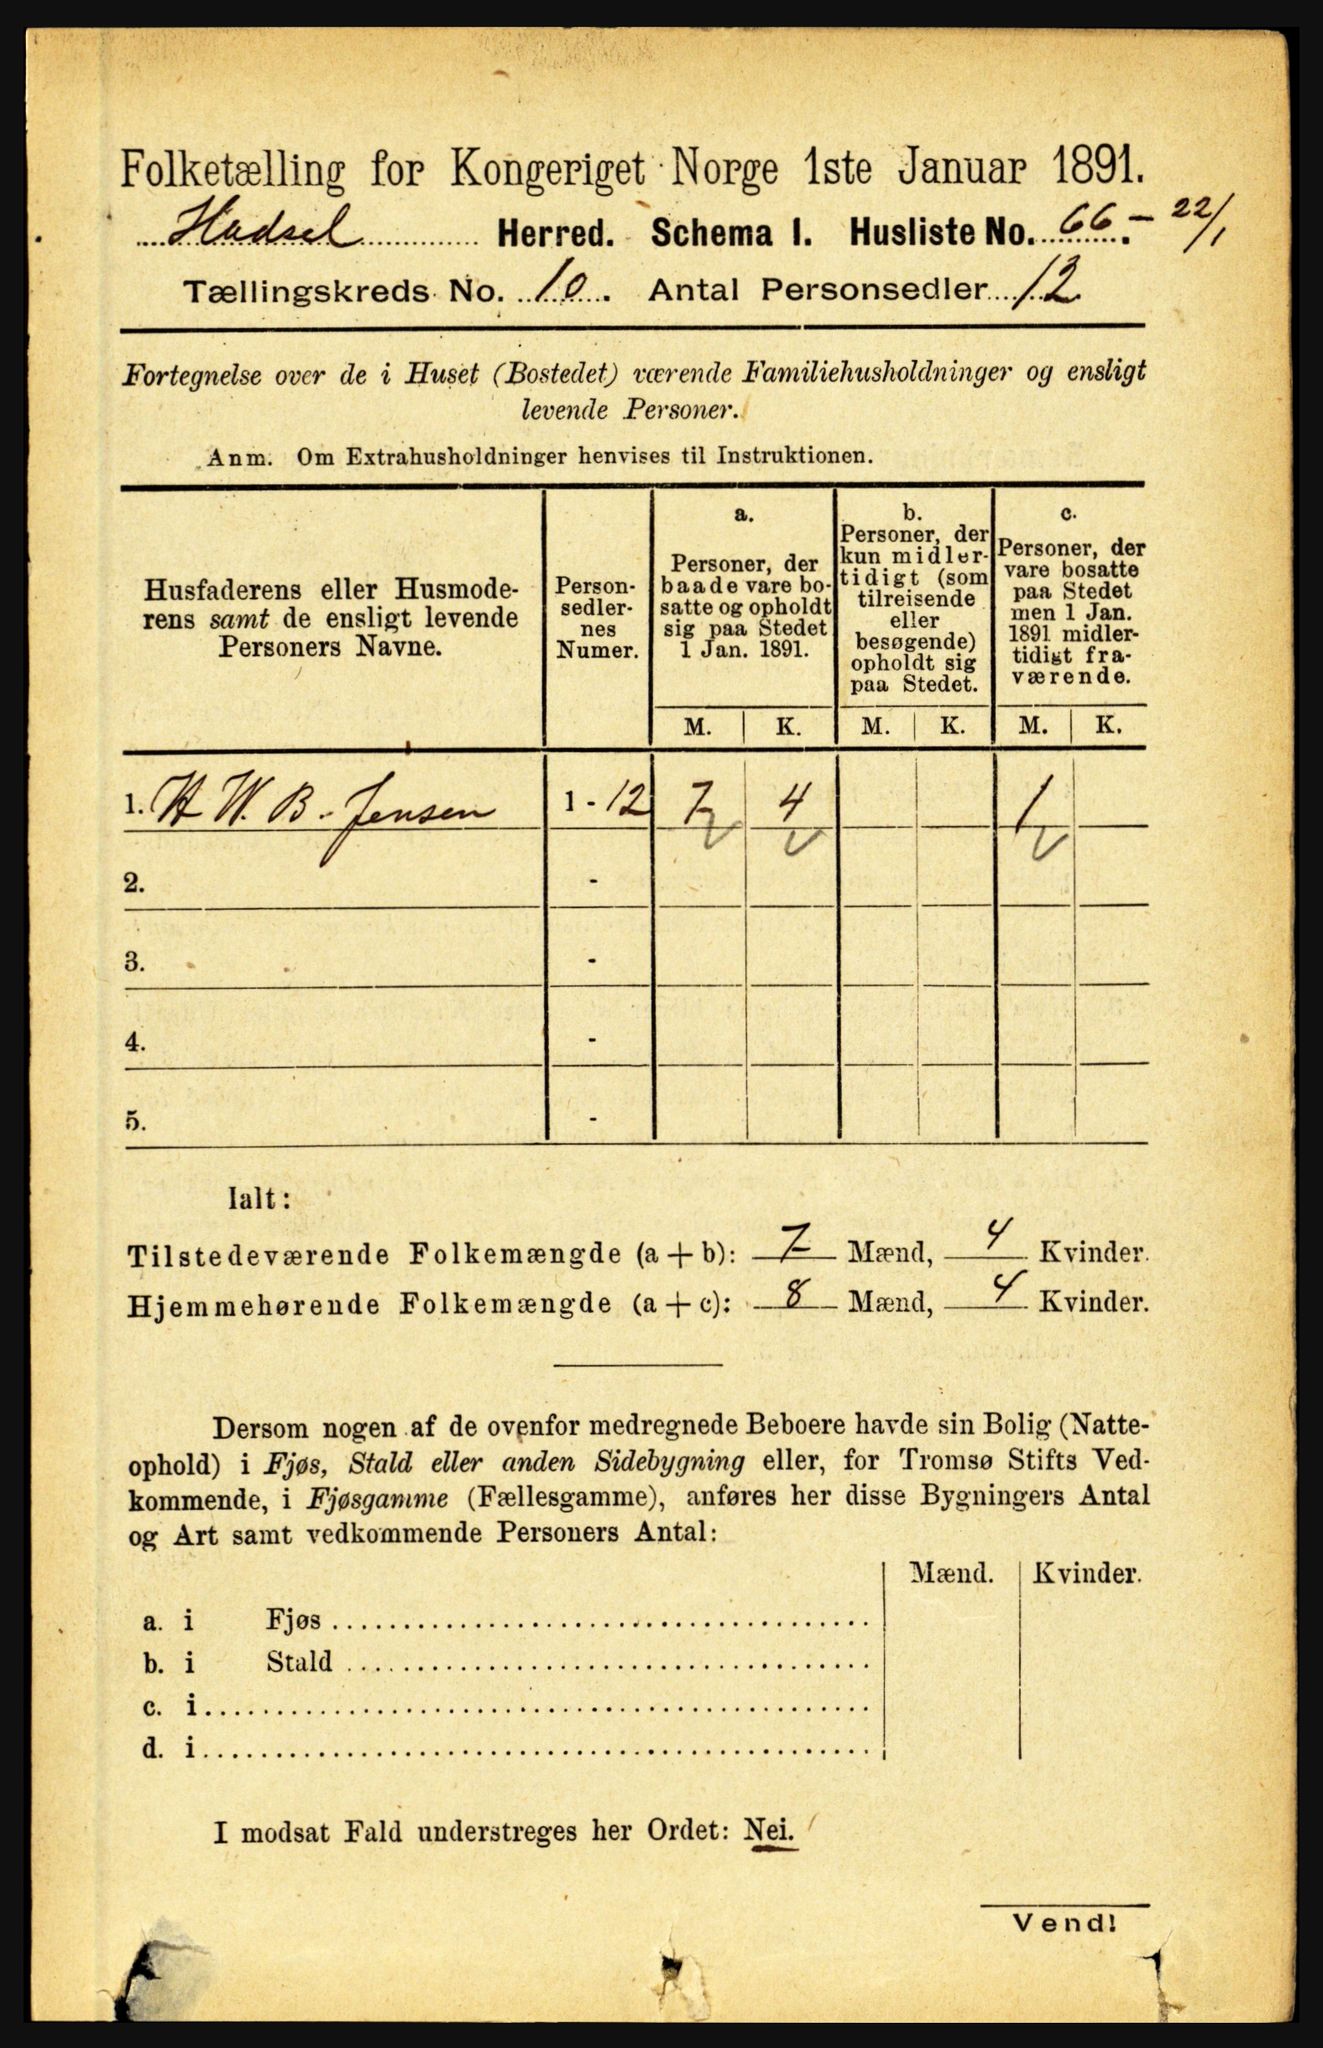 Folketælling for Kongeriget Norge 1ste Januar 1891.
Hadsel Herred. Schema 1. Husliste No. 66. - 22/1
Tællingskreds No. 10. Antal Personsedler 12
Fortegnelse over de i Huset (Bostedet) værende Familiehusholdninger og ensligt
levende Personer.
Anm. Om Extrahusholdninger henvises til Instruktionen.
Husfaderens eller Husmode-
rens samt de ensligt levende
Personers Navne.
Person-
sedler-
nes
Numer.
a.
Personer, der
baade vare bo-
satte og opholdt
sig paa Stedet
1 Jan. 1891.
b.
Personer, der
kun midler-
tidigt (som
tilreisende
eller
besøgende)
opholdt sig
paa Stedet.
c.
Personer, der
vare bosatte
paa Stedet
men 1 Jan.
1891 midler-
tidigt fra-
værende.
M. K. M. K. M. K.
1. H W. B. Jensen 1 - 12 7 4 1
2. -
3. -
4. -
5. -
Ialt:
Tilstedeværende Folkemængde (a + b): 7 Mænd, 4 Kvinder.
Hjemmehørende Folkemængde (a + c): 8 Mænd, 4 Kvinder.
Dersom nogen af de ovenfor medregnede Beboere havde sin Bolig (Natte-
ophold) i Fjøs, Stald eller anden Sidebygning eller, for Tromsø Stifts Ved-
kommende, i Fjøsgamme (Fællesgamme), anføres her disse Bygningers Antal
og Art samt vedkommende Personers Antal:
Mænd. Kvinder.
a. i Fjøs
b. i Stald
c. i
d. i
I modsat Fald understreges her Ordet: Nei.
Vend!